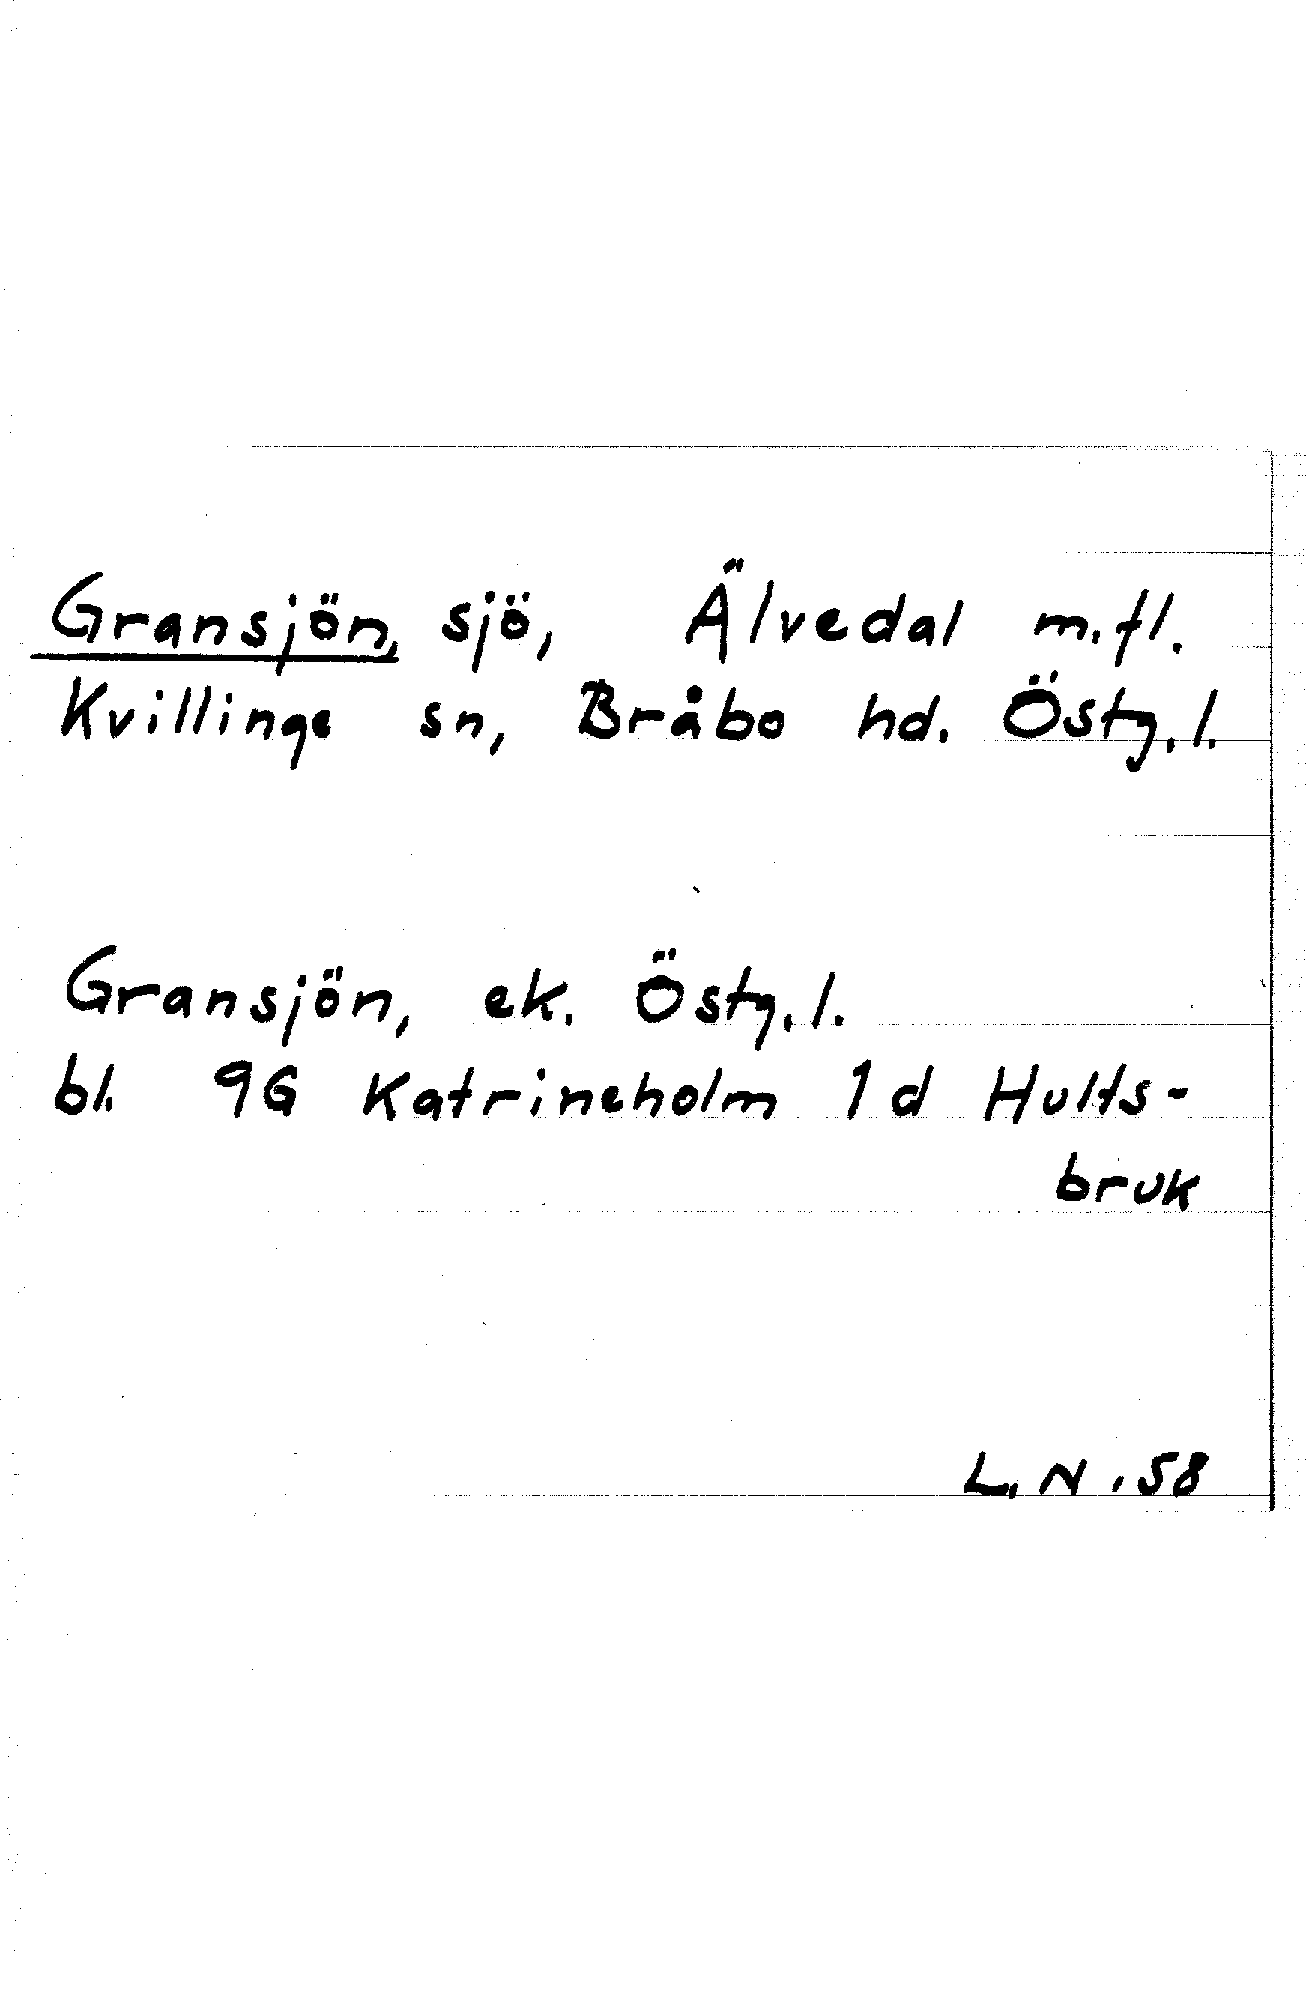 Gransjön, sjö, Älvedal m.fl.
Kvillinge sn, Bråbo hd. Östg.l.
Gransjön, ek. Östg.l.
bl. 9G Katrineholm 1d Hults-
bruk
L.N. 58